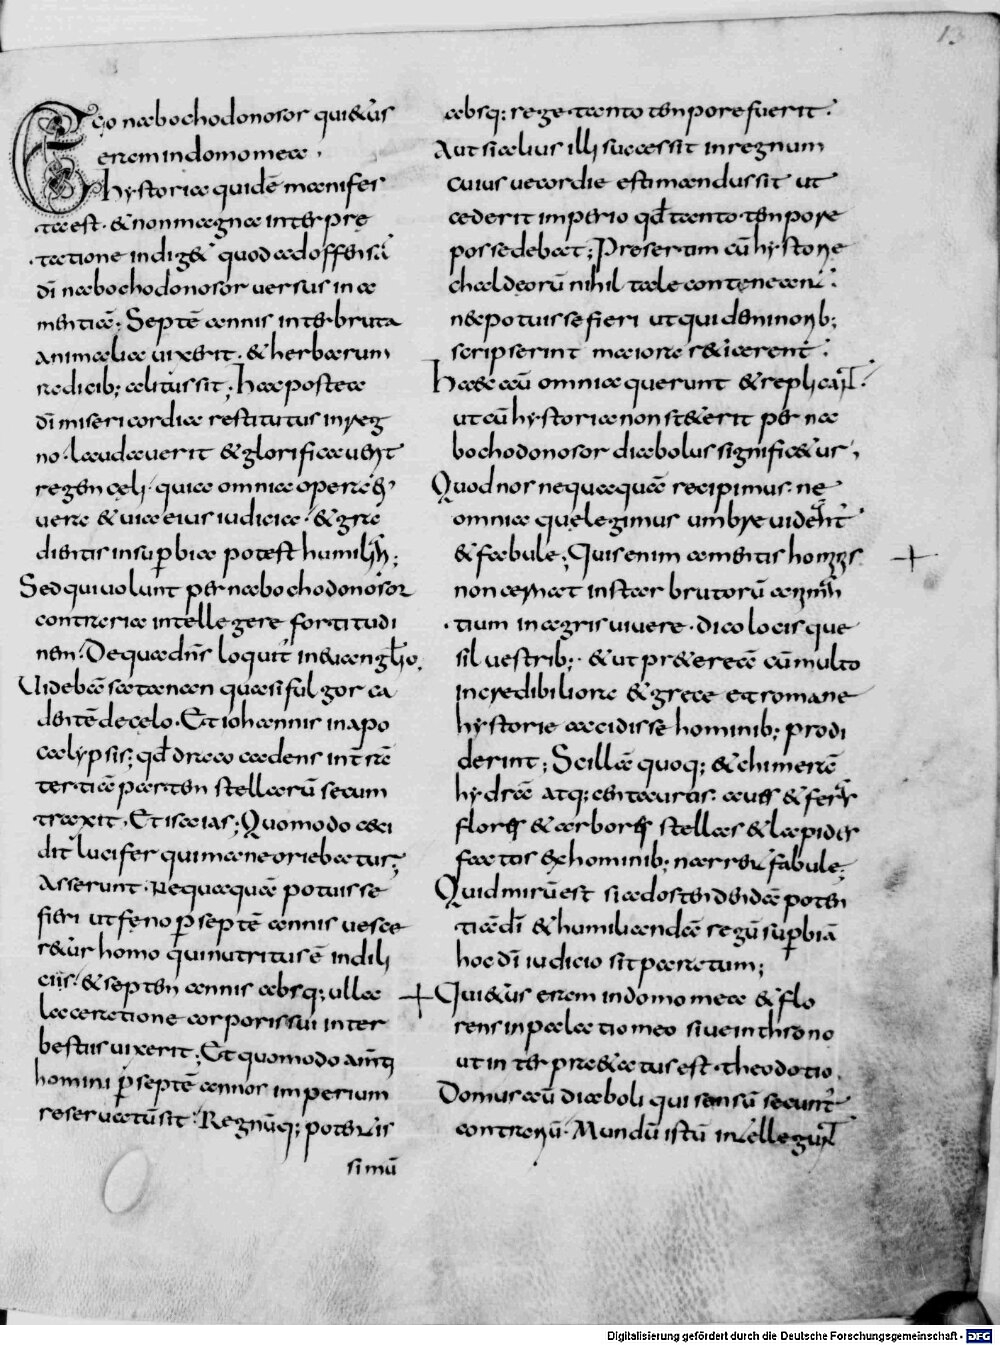 13
Ego nabochodonosor qui&us
eram in domo mea,
hystoria quidē manifes
ta est · & non magna interpre
tatione indig& quod ad offensā
dī nabochodonosor versus in a
mentiā; Septē annis inter bruta
animalia vixerit · & herbarum
radicib; alitus sit; Ha postea
dī misericordia restitutus in reg
no · laudaverit & glorificaverit
regem cęli · quia omnia opera eius
vera & via eius iudicia · & gra
dientis in suꝑbia potest humiliari;
Sed qui volunt per nabochodonosor
contraria intellegere fortitudi
nem · De qua dn̄s loquit̄ in evangelio,
Videbā satanan quasi fulgor ca
dentē de cęlo · Et iohannis in apo
calypsis; qđ draco cadens in t̄ra
tertiā partem stellarū secum
traxit · Et isaias; Quomodo ceci
dit lucifer qui mane oriebatur;
Asserunt · Nequaquā potuisse
fieri ut feno ꝑ septē annis vesce
r&ur homo qui nutritus ē in dili
ciis · & septem annis absq; ulla
laceratione corporis sui inter
bestiis vixerit; Et quomodo amēti
homini ꝑ septē annos imperium
reservatū sit · Regnūq; potentis
simū
absq; rege · tanto tempore fuerit ·
Aut si alius illi successit in regnum
cuius vecordie estimandus sit ut
cederit imperio qđ tanto · tempore
possedebat; Presertim cū hystorie
chaldęorū nihil tale contineant ·
na potuisse fieri ut qui de minorib;
scripserint maiora r&icerent ·
Haec cū omnia querunt & replicant ·
ut cū hystoria non st&erit per na
bochodonosor diabolus signific&ur,
Quod nos nequaquā recipimus · ne
omnia quę legimus umbre vident̄
& fabule; Quis enim amentis homines
non cernat instar brutorū animan
tium in agris vivere · dico locis que
silvestrib; · & ut pr&ereā cū multo
incredibiliora & grece & romane
hystorie accidisse hominib; prodi
derint; Scillā quoq; & chimerā
hydrā atq; centauros · aves & feras
flores & arbores stellas & lapides
factos ex hominib; narrent fabule;
Quid mirū est si ad ostendendā poten
tiā dī & humiliandā regū suꝑbiā
hoc dī iudicio sit paratum;
Qui&us eram in domo mea & flo
rens in palatio meo sive in throno
ut interpr&atus est · theodotio,
Domus aū diaboli qui sensū secunt̄
contrariū · Mundū istū intellegunt